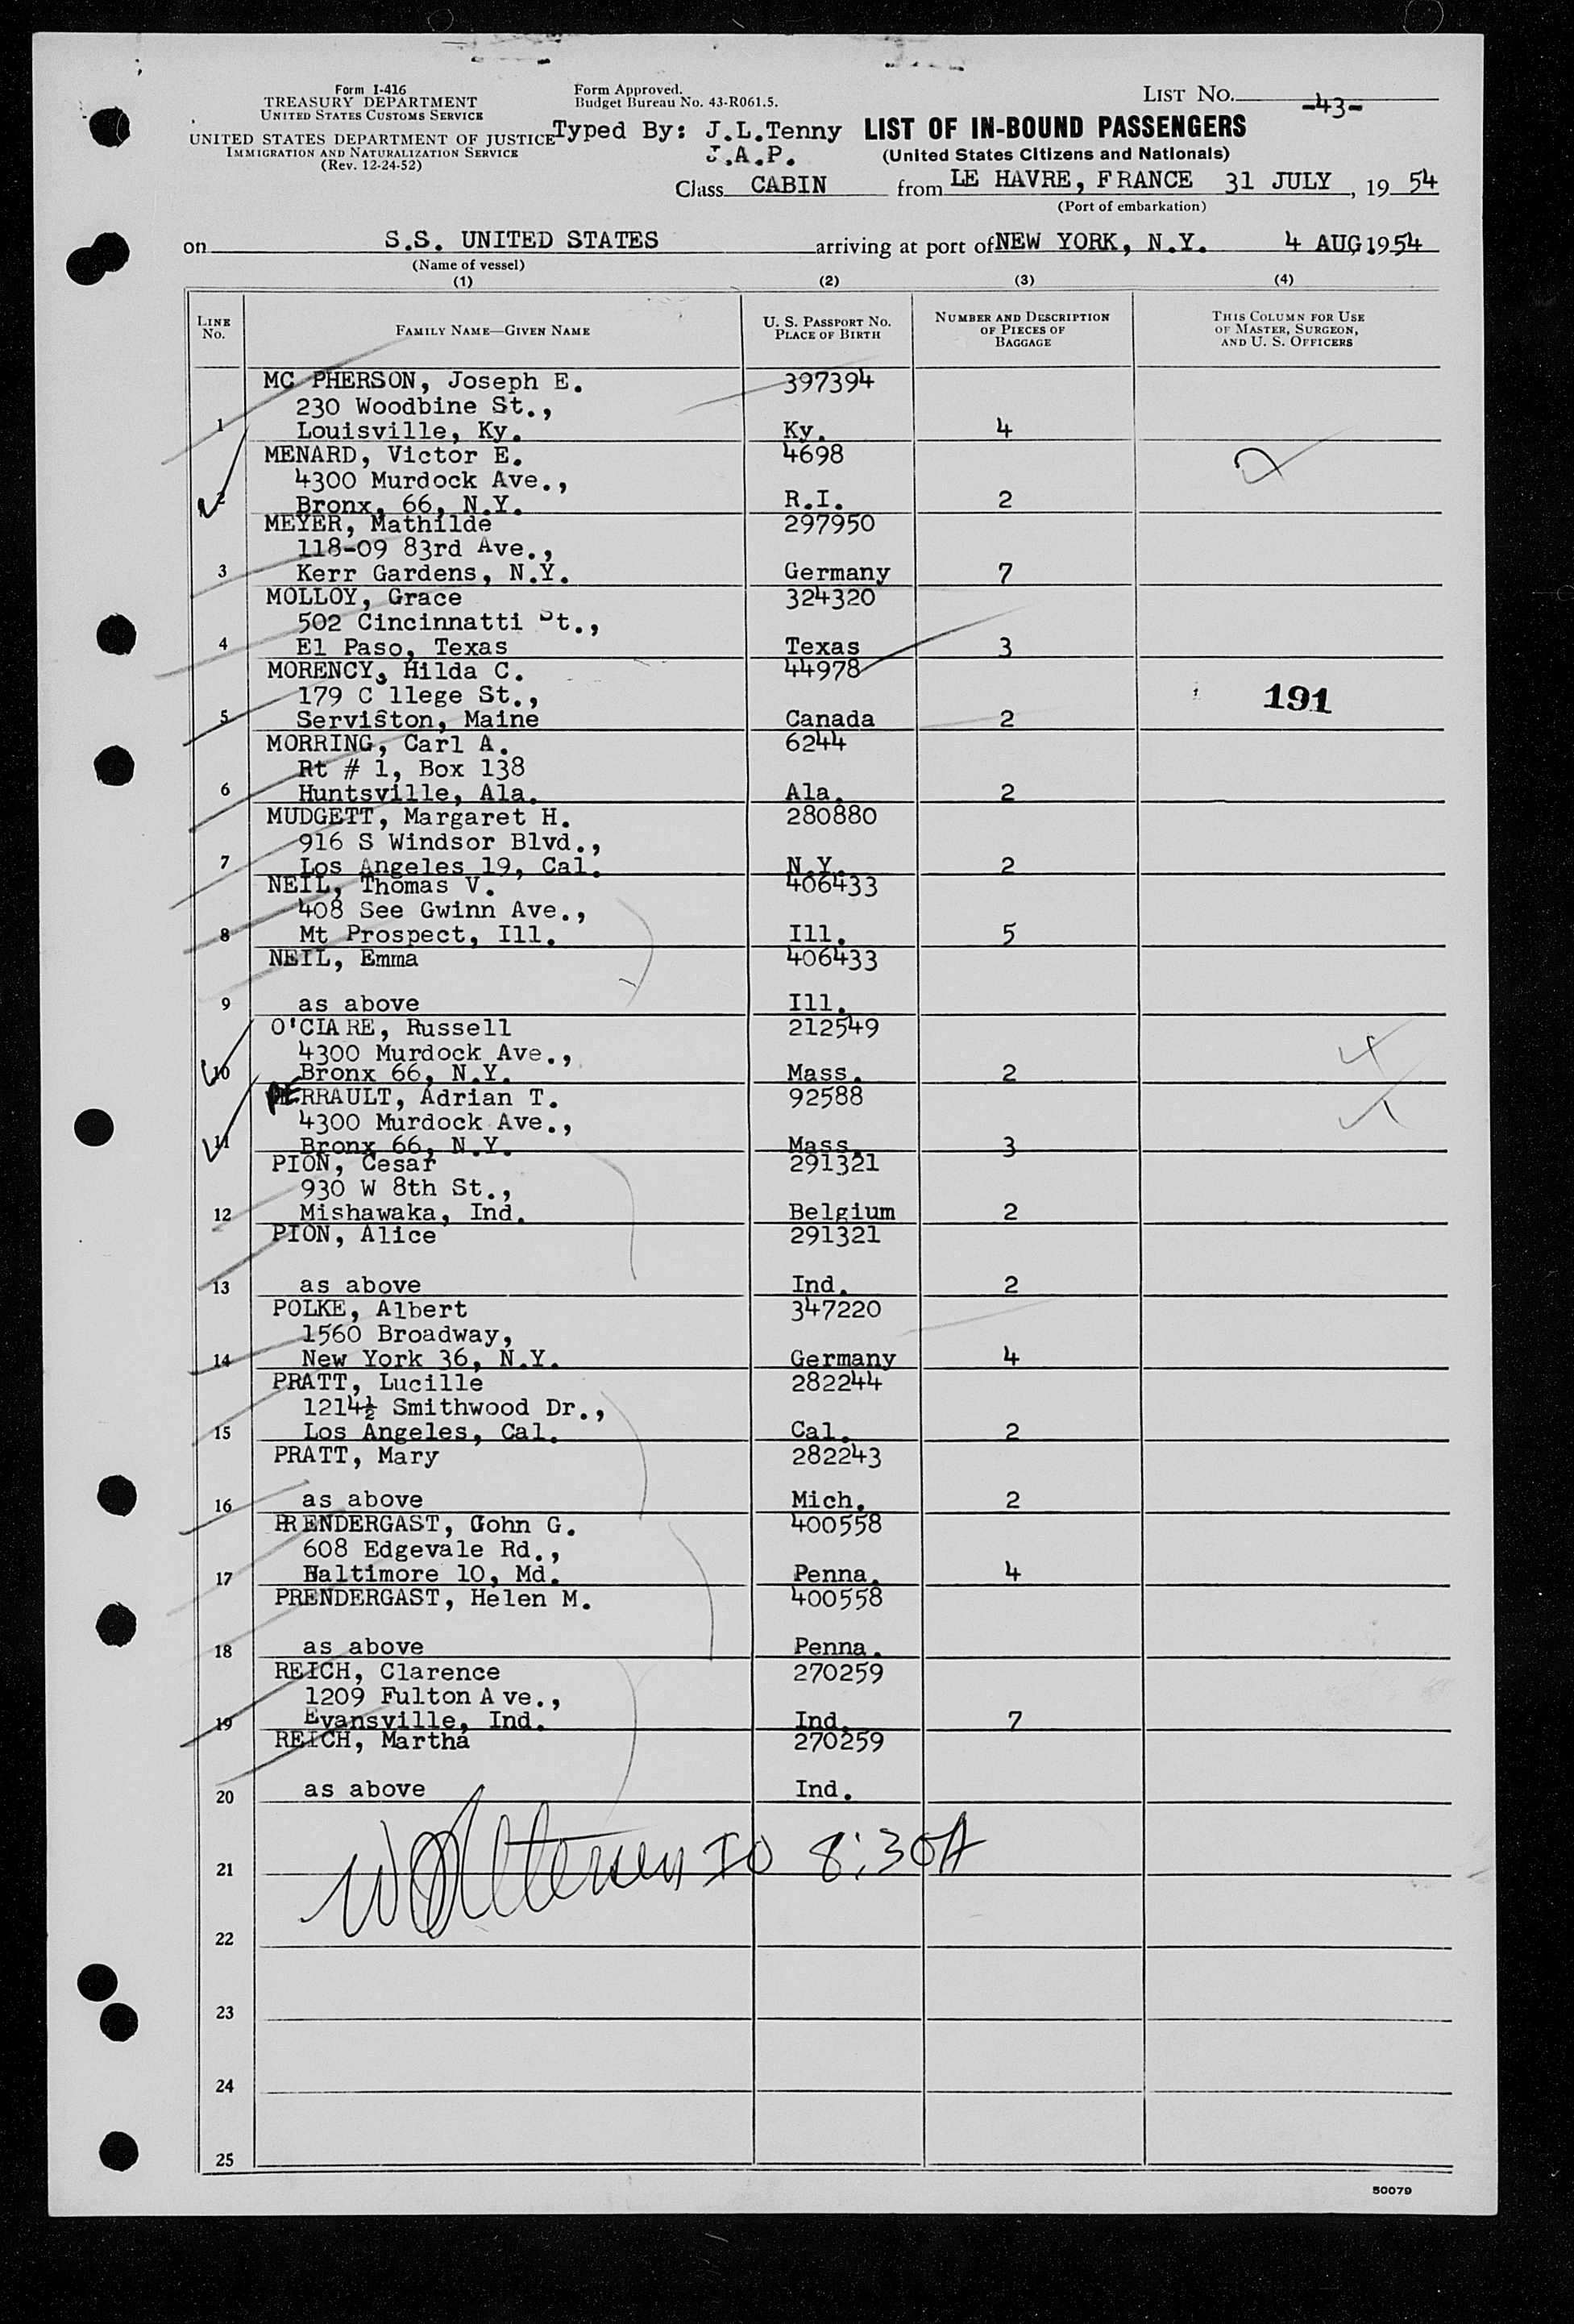 Form I-416
TREASURY DEPARTMENT
UNITED STATES CUSTOMS SERVICE
UNITED STATES DEPARTMENT OF JUSTICE
IMMIGRATION AND NATURALIZATION SERVICE
(Rev. 12-24-52)
Form Approved.
Budget Bureau No. 43-R061.5.
Typed By: J.L.Tenny
J.A.P.
LIST NO. -43-
LIST OF IN-BOUND PASSENGERS
(United States Citizens and Nationals)
Class CABIN from LE HAVRE, FRANCE 31 JULY, 19 54
(Port of embarkation)
on S.S. UNITED STATES arriving at port of NEW YORK, N.Y. 4 AUG 1954
(Name of vessel)
(1) (2) (3) (4)
LINE NO. FAMILY NAME—GIVEN NAME U. S. PASSPORT NO. PLACE OF BIRTH NUMBER AND DESCRIPTION OF PIECES OF BAGGAGE THIS COLUMN FOR USE OF MASTER, SURGEON, AND U. S. OFFICERS
MC PHERSON, Joseph E. 397394
230 Woodbine St.,
1 Louisville, Ky. Ky. 4
MENARD, Victor E. 4698
4300 Murdock Ave.,
2 Bronx, 66, N.Y. R.I. 2
MEYER, Mathilde 297950
118-09 83rd Ave.,
3 Kerr Gardens, N.Y. Germany 7
MOLLOY, Grace 324320
502 Cincinnatti St.,
4 El Paso, Texas Texas 3
MORENCY, Hilda C. 44978
179 C llege St., 191
5 Serviston, Maine Canada 2
MORRING, Carl A. 6244
Rt # 1, Box 138
6 Huntsville, Ala. Ala. 2
MUDGETT, Margaret H. 280880
916 S Windsor Blvd.,
7 Los Angeles 19, Cal. N.Y. 2
NEIL, Thomas V. 406433
408 See Gwinn Ave.,
8 Mt Prospect, Ill. Ill. 5
NEIL, Emma 406433
9 as above Ill.
O'CIARE, Russell 212549
4300 Murdock Ave.,
10 Bronx 66, N.Y. Mass. 2
PERRAULT, Adrian T. 92588
4300 Murdock Ave.,
11 Bronx 66, N.Y. Mass. 3
PION, Cesar 291321
930 W 8th St.,
12 Mishawaka, Ind. Belgium 2
PION, Alice 291321
13 as above Ind. 2
POLKE, Albert 347220
1560 Broadway,
14 New York 36, N.Y. Germany 4
PRATT, Lucille 282244
1214½ Smithwood Dr.,
15 Los Angeles, Cal. Cal. 2
PRATT, Mary 282243
16 as above Mich. 2
PRENDERGAST, Gohn G. 400558
608 Edgevale Rd.,
17 Baltimore 10, Md. Penna. 4
PRENDERGAST, Helen M. 400558
18 as above Penna.
REICH, Clarence 270259
1209 Fulton Ave.,
19 Evansville, Ind. Ind. 7
REICH, Martha 270259
20 as above Ind.
21 IO 8:30A
22
23
24
25
50079